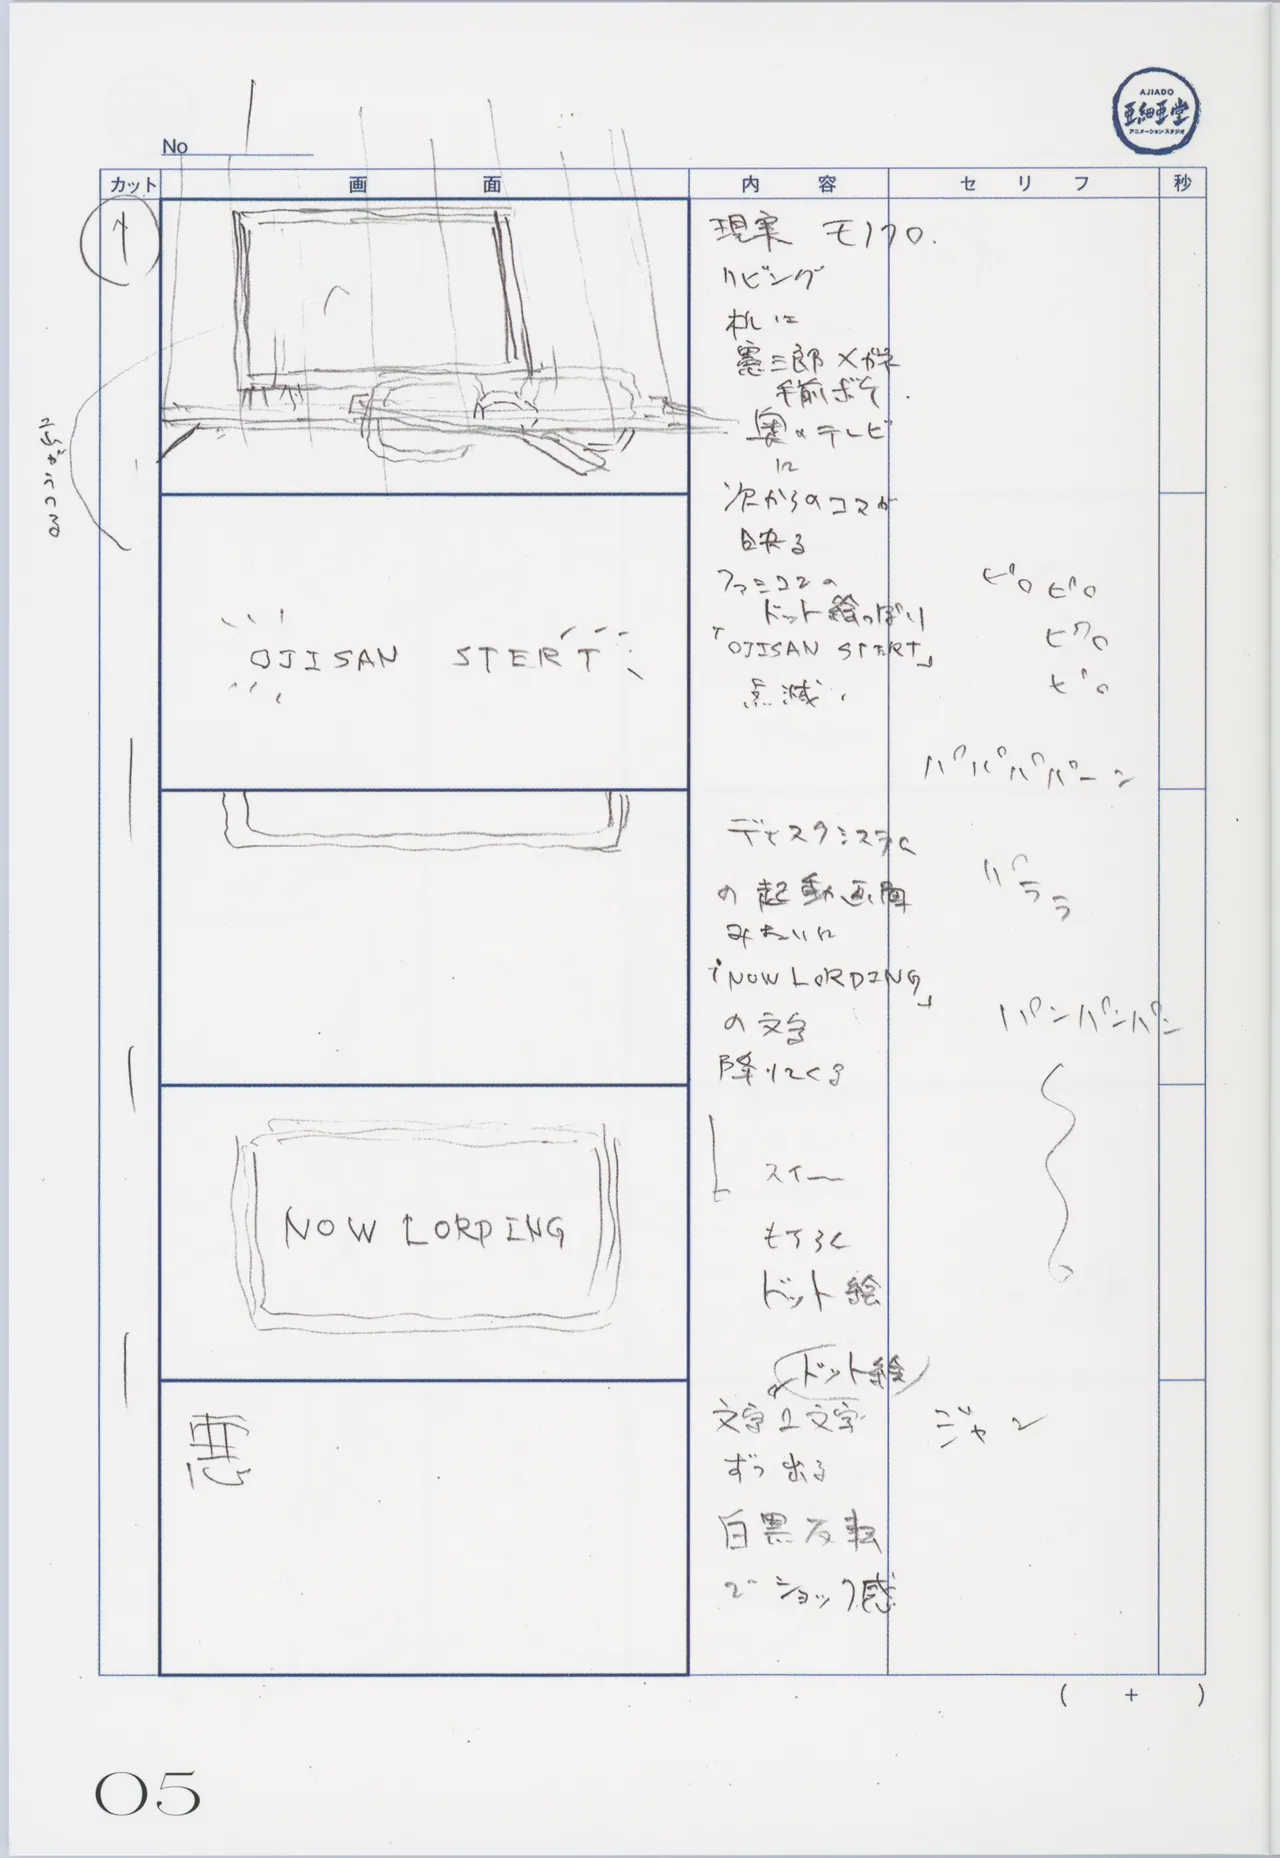 AJIADO
亜細亜堂
アニメーションスタジオ
No
カット
画面
内容
セリフ
秒
1
現実 モノクロ.
リビング
机に
憲三郎メガネ
手前ボケ.
奥のテレビ
に
次からのコマが
映る
ファミコンの
ドット絵っぽい
「OJISAN STERT」
点滅.
OJISAN STERT
ピロピロ
ピロ
ピロ
パパパパーン
ディスクシステム
の起動画面
みたいに
「NOW LORDING」
の文字
降りてくる
パ
ララ
パンパンパン
スイー
もすろく
ドット絵
NOW LORDING
ドット絵
文字1文字
ずつ出る
白黒反転
でショック感
ジャン
( + )
05